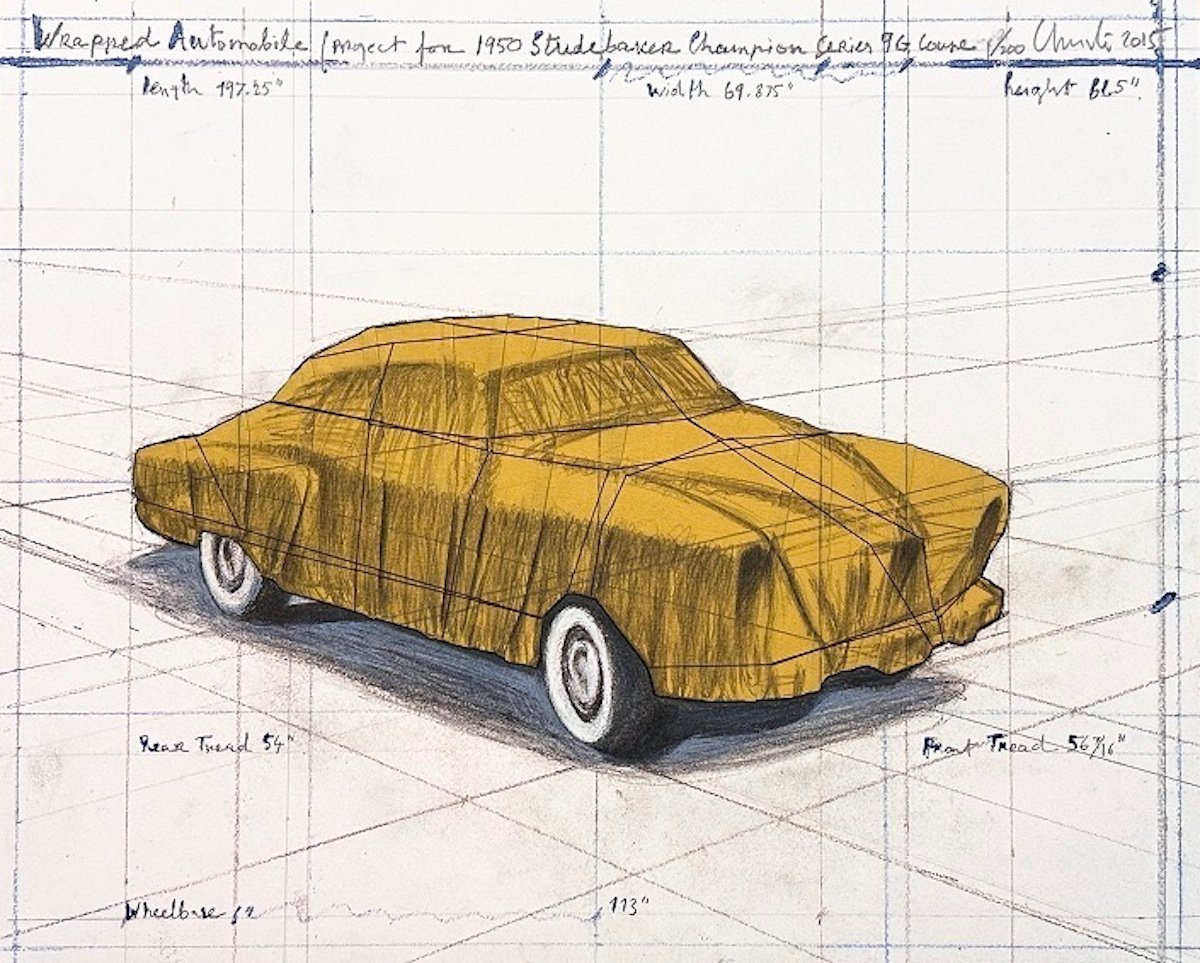 Wrapped Automobile (Project for 1950 Studebaker Champion Series 9G Coupe 1/200 Christo 2015
Length 197.25" Width 69.875" height 61.5".
Rear Tread 54" Front Tread 56 7/16"
Wheelbase 113"